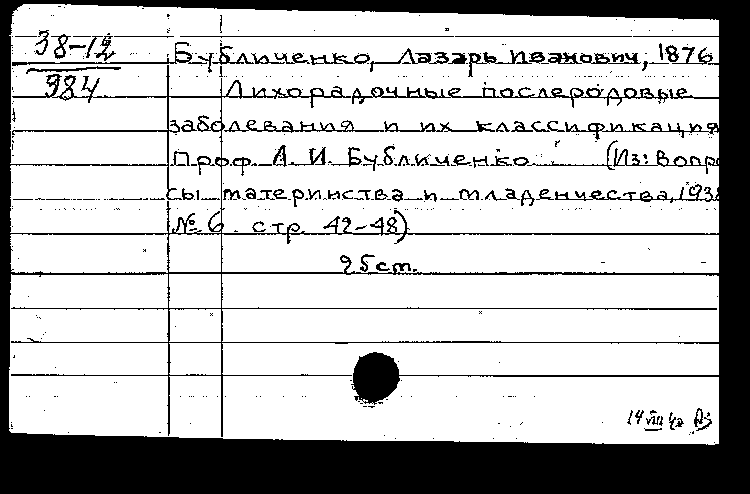 38-12
984
Бубличенко, Лазарь Иванович, 1876
Лихорадочные послеродовые
заболевания и их классификация
Проф. Л. И. Бубличенко (Из: Вопро
сы материнства и младенчества, 1938
№ 6. стр. 42-48)
25 cm.
14 VIII 42